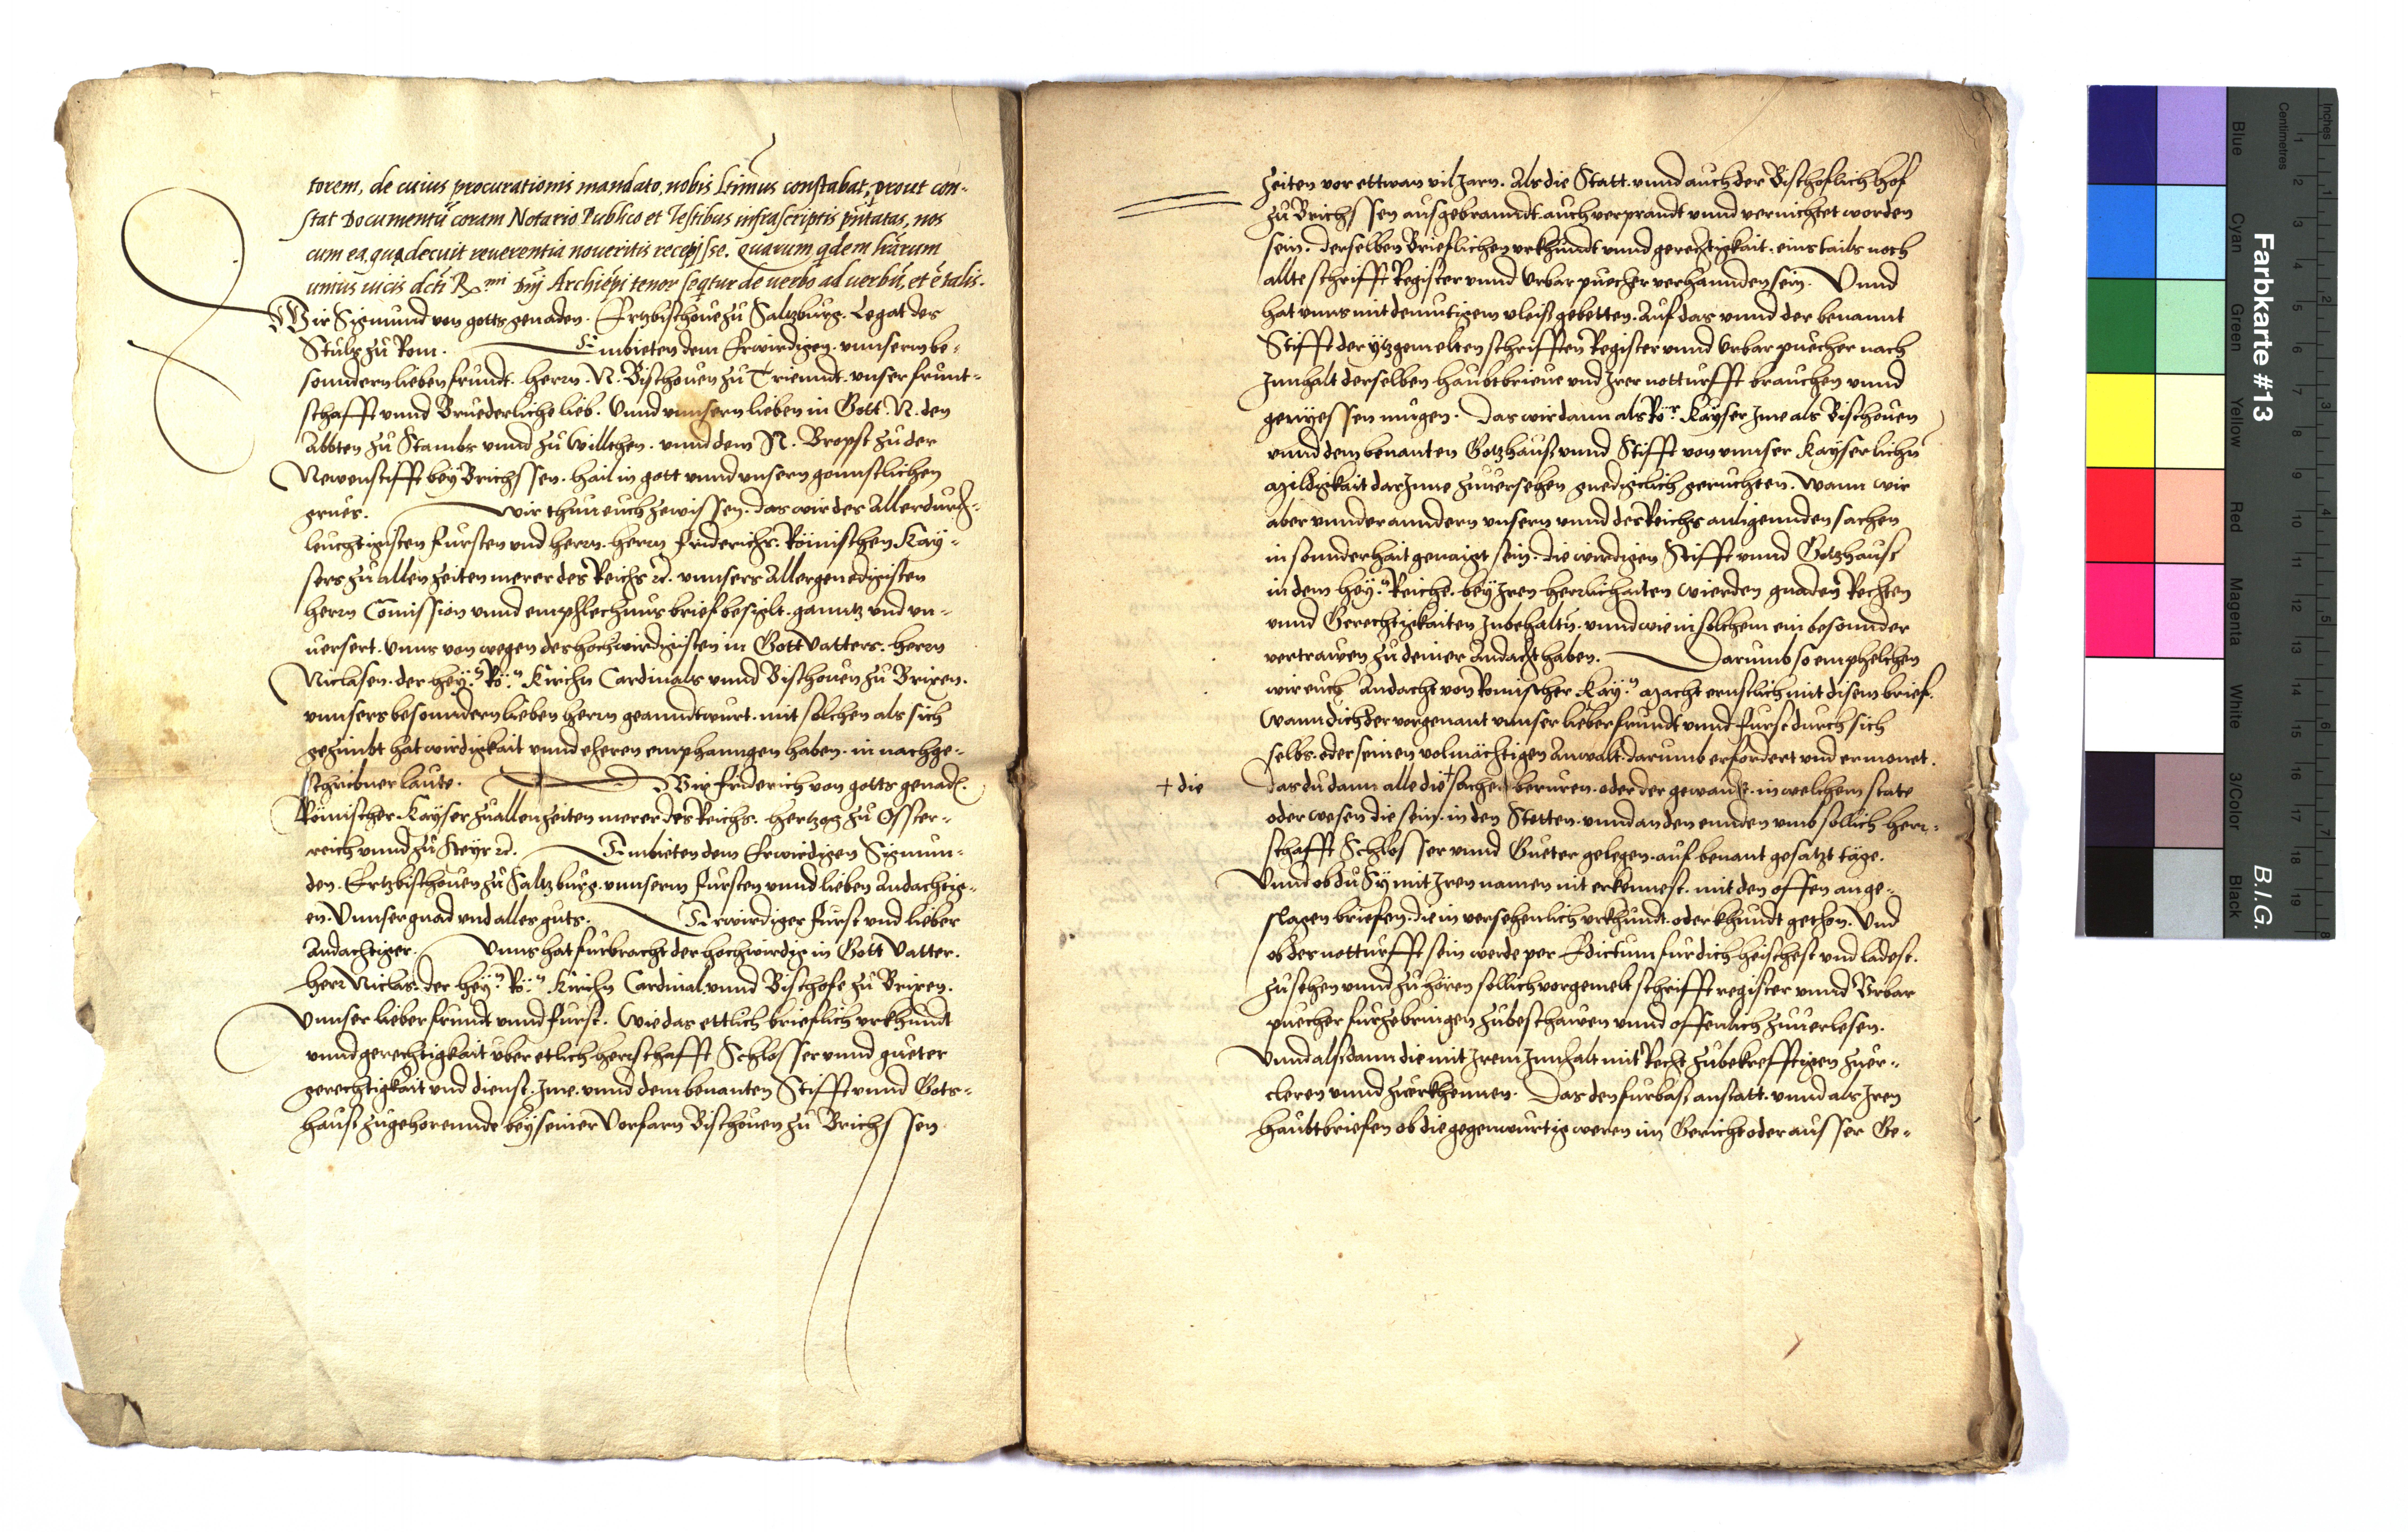 torem, de cuius procurationis mandato, nobis Ltimus constabat, prout con-
stat Documentū coram Notario Publico et Testibus infrascriptis pñtatas, nos
cum ea, qua decuit reverentia noveritis recepisse. Quarum qdem lrārum
unius vicis dcti Rmi Dnj Archiepi tenor seqtur de verbo ad verbū, et ē talis.
Wir Sigmund von gotts genaden. Ertzbischove zu Saltzburg. Legat des
Stuls zu Rom. Embieten dem Erwirdigen. unnserm be-
sonndern lieben frundt. herrn. N. Bischoven zu Trienndt. unser frunt-
schafft unnd Bruederliche lieb. Unnd unnsern lieben in Gott. N. den
Abbten zu Stambs unnd zu Willthen. unnd dem N. Bropst zu der
Newenstifft bey Brichssen. hail in gott unnd unsern gonnstlichen
grues. Wir thun euch zewissen. das wir des Allerdurch-
leuchtigisten fursten und herrn. herrn friderichs. Römischen Kay-
sers zu allen zeiten merer des Reichs etc. unnsers Allergenedigisten
herrn Comission unnd emphlechnus brief besiglt. ganntz und un-
versert. Unns von wegen des hochwirdigisten in Gott Vatters. herrn
Niclasen. der hey:n Rö:n Kirchn Cardinals unnd Bischoven zu Brixen.
unnsers besonndern lieben herrn geanndtwurt. mit solchen als sich
gezimbt hat wirdigkait unnd eheren emphanngen haben. in nachge-
schribner laute. Wir friderich von gotts genad.
Römischer Kayser zu allen zeiten merer des Reichs. hertzog zu Osster-
reich unnd zu Steyr etc. Embieten dem Erwirdigen Sigmun-
den. Ertzbischoven zu Saltzburg. unnserm fursten unnd lieben Andachtig-
en. Unnser gnad und alles guts. Erwirdiger furst und lieber
Andachtiger. Unns hat furbracht der hochwirdig in Gott Vatter.
herr Niclas. der hey:n Rö:n Kirchn Cardinal. unnd Bischofe zu Brixen.
Unnser lieber frundt unnd furst. Wie das ettlich brieflich urkhundt
unnd gerechtigkait uber etlich herrschafft Schlosser unnd gueter
gerechtigkait und dienst. Jme. unnd dem benanten Stifft unnd Gots-
hauß zugehorennde bey seiner Vorfarn Bischoven zu Brichssen
zeiten vor ettwan vil Jarn. Als die Statt. unnd auch der Bischoflich hof
zu Brichssen ausgebranndt. auch verprandt unnd vernichtet worden
sein. derselben Brieflichen urkhundt unnd gerechtigkait. eins tails noch
allte schrifft Register unnd Urbarpuecher verhannden sein. Unnd
hat unns mit demutigem vleiß gebetten. Auf das unnd der benannt
Stifft der ytzgemelten schrifften Register unnd Urbarpuecher nach
Jnnhalt derselben haubtbrieve und Jrer notturfft brauchen unnd
genyessen mugen. Das wir dann als Rör. Kayser Jme als Bischoven
unnd dem benanten Gotzhauß unnd Stifft von unnser Kayserlichn
Mildigkait darJnne zuversehen gnediglich geruchten. Wann wir
aber unnder anndern unsern unnd des Reichs anligennden sachen
in sonnderhait genaigt sein. die wirdigen Stifft unnd Gotzhausr
in dem hey:n Reiche. bey Jren herrlichaiten wierden gnaden Rechten
unnd Gerechtigkaiten Zubehaltn. unnd wie in solchem ein besonnder
vertrawen zu deiner Andacht haben. Darumb so emphelchen
wir euch Andacht von Romischer Kay:n Macht ernstlich mit disem brief.
Wann dich der vorgenant unnser lieber frundt unnd furst durch sich
selbs. oder seinen volmächtigen Anwalt. darumb erfordert und ermonet.
+ die
das du dann alle die + sache beruren. oder der gewande. in welchem state
oder wesen die sein. in den Stetten. unnd an den ennden umb sollich herr-
schafft Schlosser unnd Gueter gelegen. auf benant gesatzt täge.
Unnd ob du Sy mit Jren namen nit erkennest. mit den offen ange-
slagen briefen. die in versehenlich urkhundt. oder khundt gethon. Und
ob des notturfft sein werde per Edictum fur dich heischest und ladest.
Zusehen unnd zu hören sollich vorgemelt schrifft register unnd Urbar
puecher furzebringen zubeschawen unnd offenlich zuverlesen.
Unnd alsdann die mit Jrem Jnnhalt mit Recht zubekrefftigen zuer-
cleren unnd zuerkhennen. Das den furbas, anstatt. unnd als Jren
haubtbriefen ob die gegenwurtig weren im Gericht oder ausser Ge-